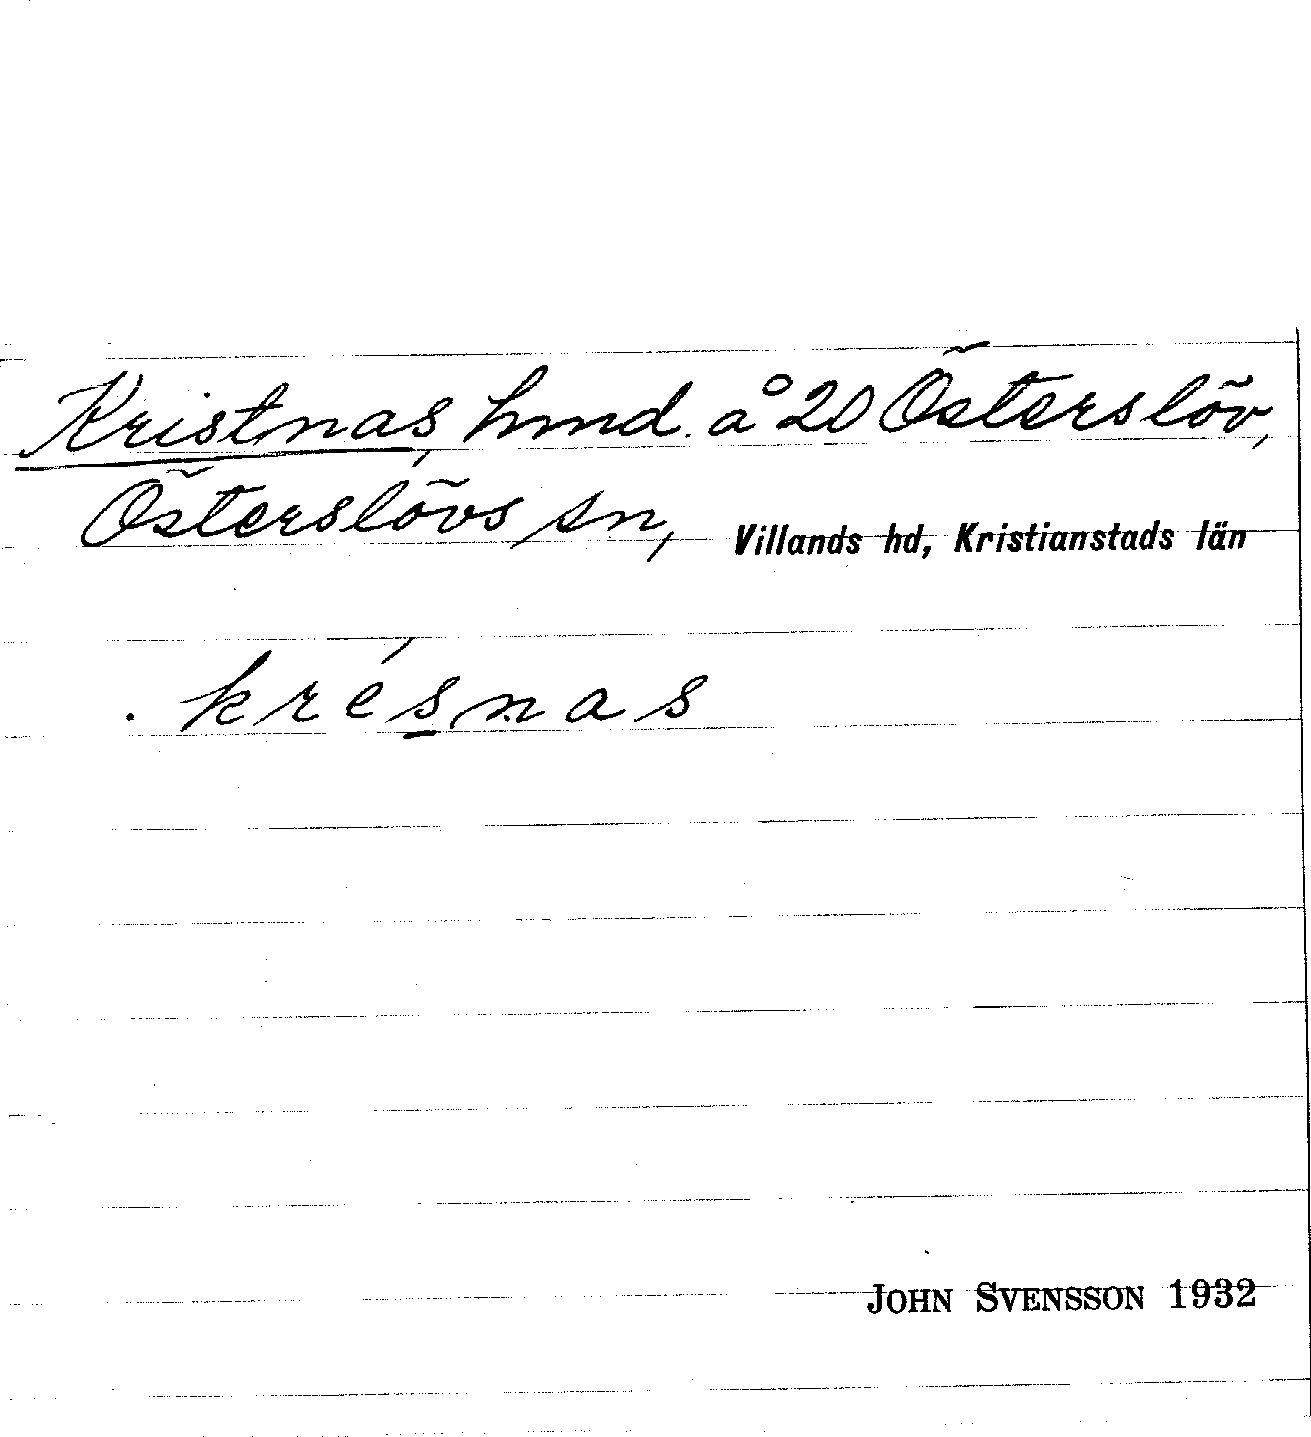 Kristnas, hmd. å 20 Österslöv,
Österslövs sn, Villands hd, Kristianstads län
. krésnas
JOHN SVENSSON 1932